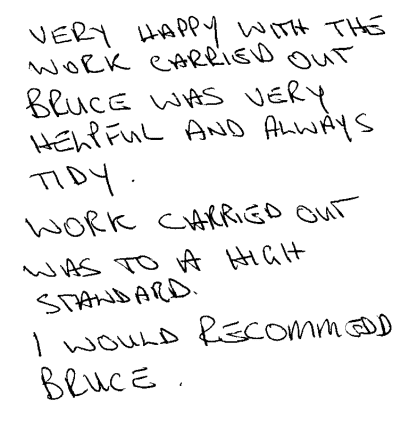 VERY HAPPY WITH THE
WORK CARRIED OUT
BRUCE WAS VERY
HELPFUL AND ALWAYS
TIDY.
WORK CARRIED OUT
WAS TO A HIGH
STANDARD.
I WOULD RECOMMEDD
BRUCE.